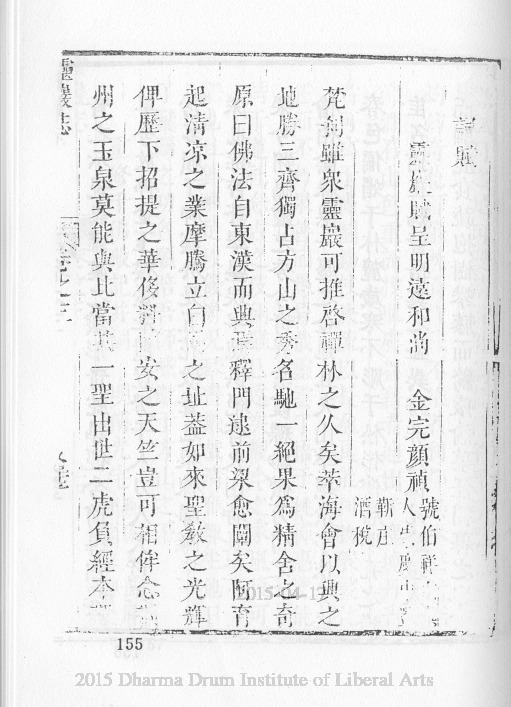 詩賦
靈巖賦呈明遠和尚　金完顏禎
號伯祥
人
靳
酒稅
梵刹雖衆靈巖可推啓禪林之久矣萃海會以興之
地勝三齊獨占方山之秀名馳一絕果爲精舍之奇
原曰佛法自東漢而興釋門逮前梁愈闡矣阿育
起清凉之業摩騰立白之址葢如來聖敎之光輝
俾歷下招提之華侈安之天竺豈可相侔念
州之玉泉莫能與此當其一聖出世二虎負經本
靈巖志
卷之三
155
2015-04-15
2015 Dharma Drum Institute of Liberal Arts